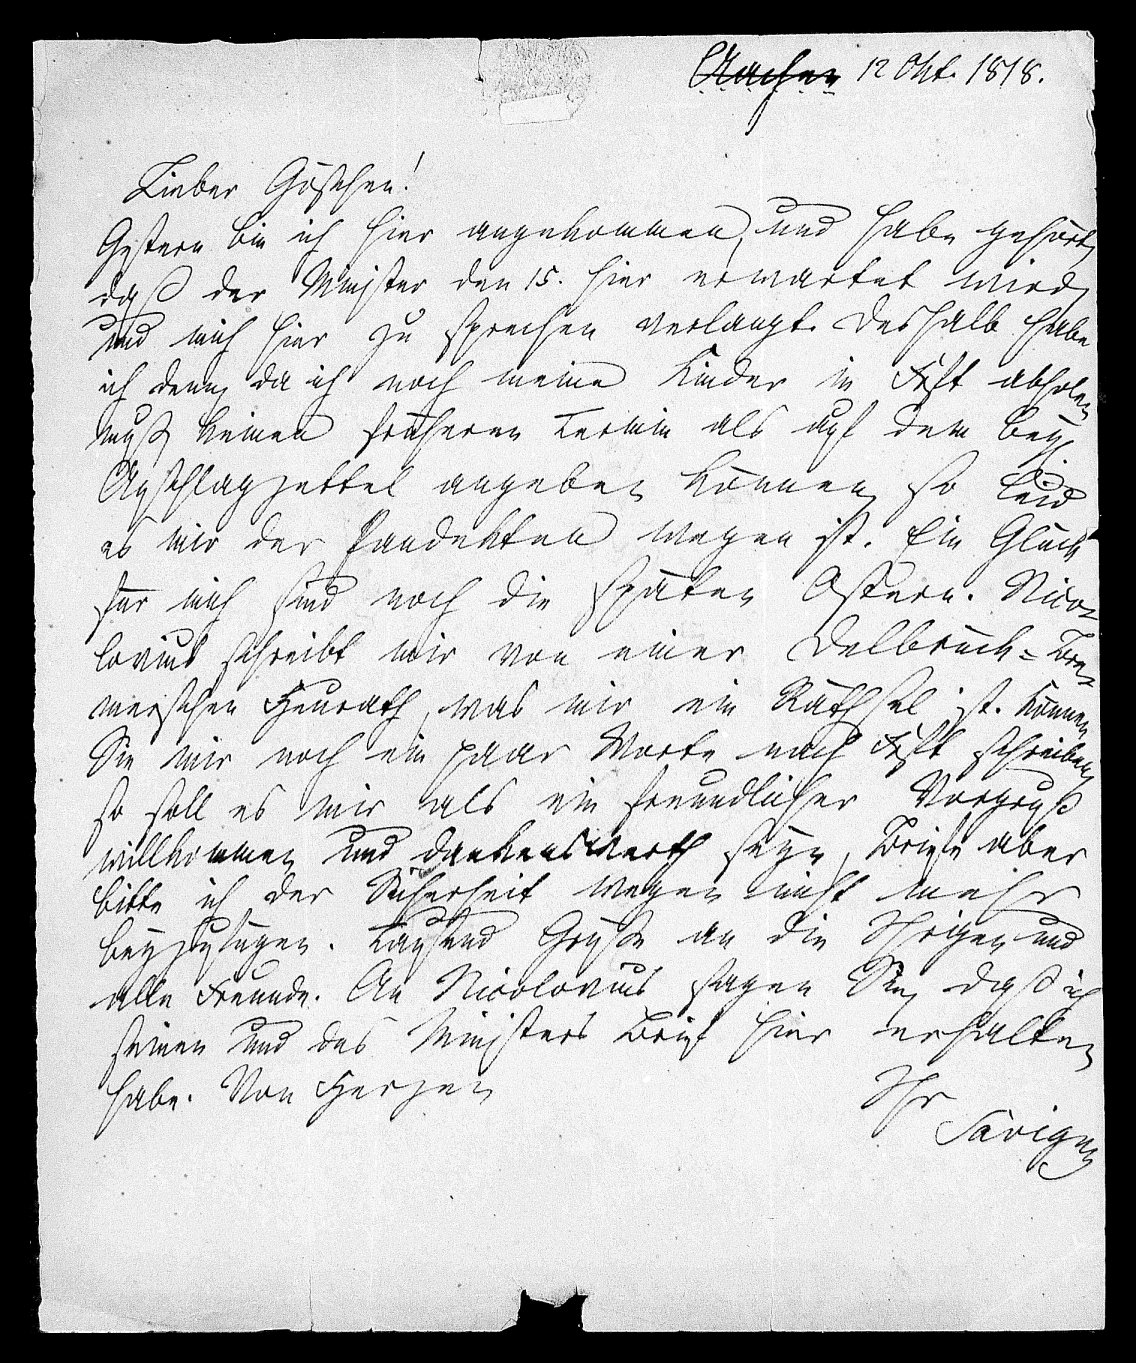 Aachen 12 Okt. 1818.
Lieber Göschen!
Gestern bin ich hier angekommen, und habe gehört,
daß der Minister den 15. hier erwartet wird,
und mich hier zu sprechen verlangt. Deshalb habe
ich denn, da ich noch meine Kinder in Fft abholen
muß, keinen früheren Termin als auf dem bey
Anschlagzettel angeben können, so Leid
es mir der Pandekten wegen ist. Ein Glück
für mich sind noch die späten Ostern. Nico-
lovius schreibt mir von einer Delbrück-
merschen Heurath, was mir ein Räthsel ist. Können
Sie mir noch ein paar Worte nach Fft schreiben,
so soll es mir als ein freundlicher Vorgruß
willkommen und dankenswerth seyn, Briefe aber
bitte ich der Sicherheit wegen nicht mehr
beyzufügen. Tausend Grüße an die Ihrigen und
alle Freunde. An Nicolovius sagen Sie, daß ich
seinen und des Ministers Brief hier erhalten
habe. Von Herzen
Ihr
Savigny